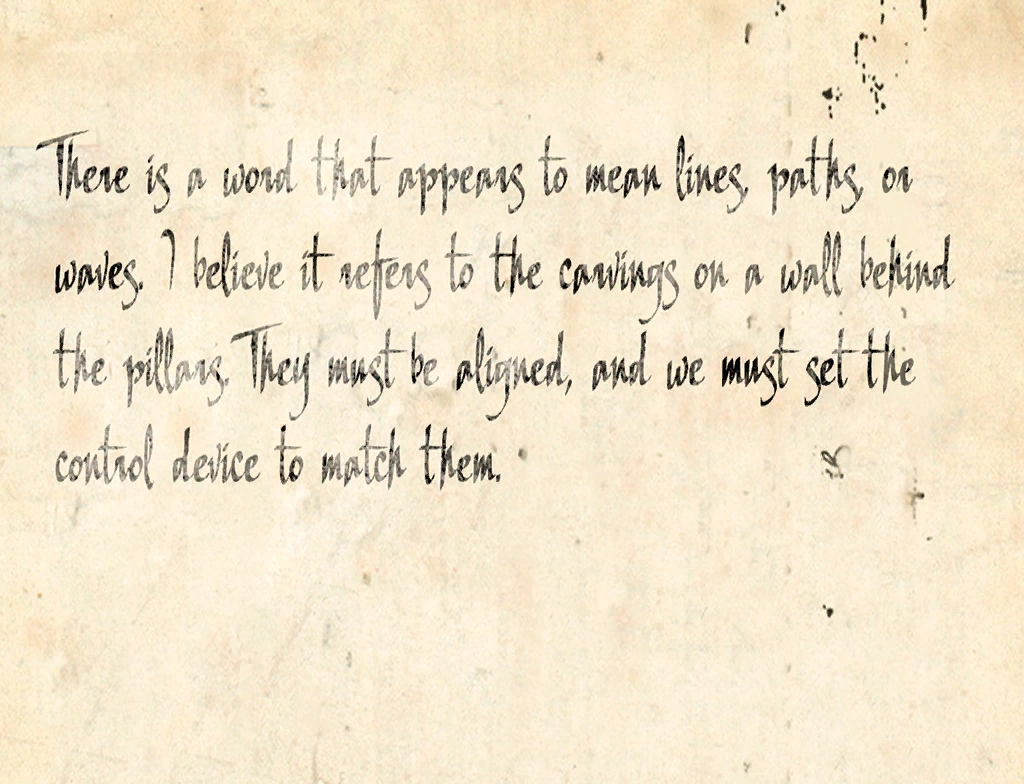 There is a word that appears to mean lines, paths, or
waves. I believe it refers to the carvings on a wall behind
the pillars. They must be aligned, and we must set the
control device to match them.